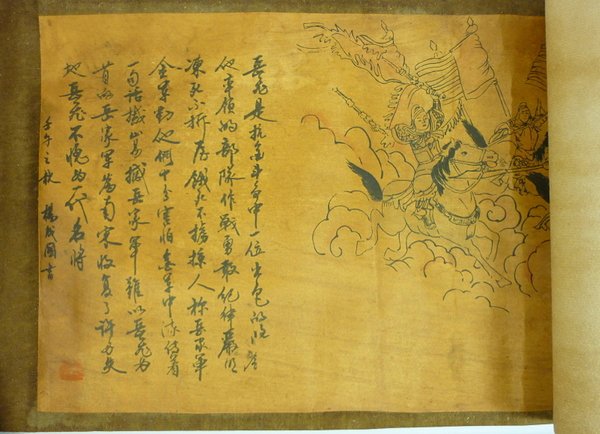 岳飛是抗金斗争中一位出色的
他率領的部隊作戰勇敢紀律嚴明
凍死不拆屋餓死不擄掠人称岳家軍
金軍对他們十分害怕金軍中流传着
一句話撼山易撼岳家軍難以岳飛为
首的岳家軍為南宋收复了許多失
地岳飛不愧为一代名將
壬午之秋 楊成國書